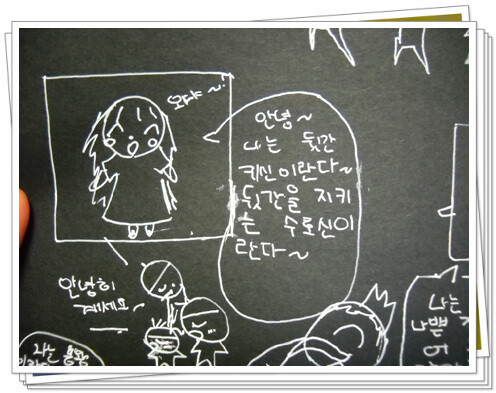 안녕~
나는 뒷간
키신이란다~
뒷간을 지키
는 수로신이
란다~
안녕히
계세요
나는
나쁜
어
나는 용왕